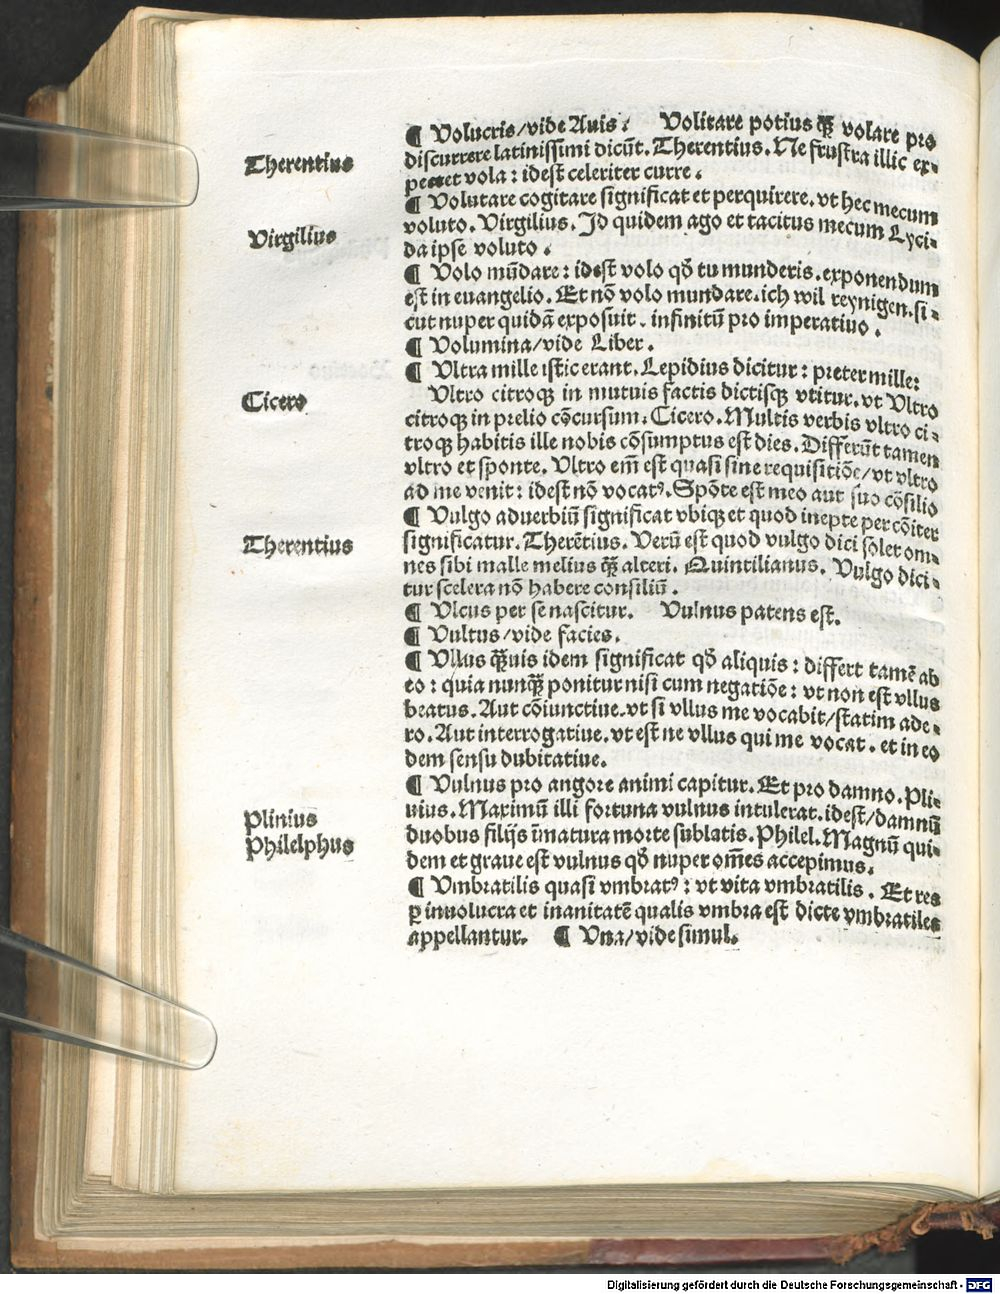 ¶ Volucris/vide Auis. Volitare potius qȝ volare pro
Therentius
discurrere latinissimi dicūt. Therentius. Ne frustra illic ex⸗
pectet vola: idest celeriter curre.
¶ Volutare cogitare significat et perquirere. vt hec mecum
Virgilius
voluto. Virgilius. Id quidem ago et tacitus mecum Lyci⸗
da ipse voluto.
¶ Volo mūdare: idest volo qđ tu munderis. exponendum
est in euangelio. Et nō volo mundare. ich wil reynigen. si⸗
cut nuper quidā exposuit. infinitū pro imperatiuo.
¶ Volumina/vide Liber.
¶ Vltra mille istic erant. Lepidius dicitur: preter mille:
Cicero
Vltro citroqȝ in mutuis factis dictisqȝ vtitur. vt Vltro
citroqȝ in prelio cōcursum. Cicero. Multis verbis vltro ci⸗
troqȝ habitis ille nobis cōsumptus est dies. Differūt tamen
vltro et sponte. Vltro em̄ est quasi sine requisitiōe/vt vltro
ad me venit: idest nō vocatꝰ. Spōte est meo aut suo cōsilio
¶ Vulgo aduerbiū significat vbiqȝ et quod inepte per cōiter
Therentius
significatur. Therētius. Verū est quod vulgo dici solet om⸗
nes sibi malle melius qȝ alteri. Quintilianus. Vulgo dici⸗
tur scelera nō habere consiliū.
¶ Vlcus per se nascitur. Vulnus patens est.
¶ Vultus/vide facies.
¶ Vllus qȝuis idem significat qđ aliquis: differt tamē ab
eo: quia nunqȝ ponitur nisi cum negatiōe: vt non est vllus
beatus. Aut cōiunctiue. vt si vllus me vocabit/statim ade⸗
ro. Aut interrogatiue. vt est ne vllus qui me vocat. et in eo
dem sensu dubitatiue.
¶ Vulnus pro angore animi capitur. Et pro damno. Pli⸗
Plinius
nius. Maximū illi fortuna vulnus intulerat. idest/damnū
Philelphus
duobus filijs īmatura morte sublatis. Philel. Magnū qui⸗
dem et graue est vulnus qđ nuper om̄es accepimus.
¶ Vmbratilis quasi vmbratꝰ: vt vita vmbratilis. Et res
ꝑ inuolucra et inanitatē qualis vmbra est dicte vmbratiles
appellantur. ¶ Vna/vide simul.
Digitalisierung gefördert durch die Deutsche Forschungsgemeinschaft - DFG